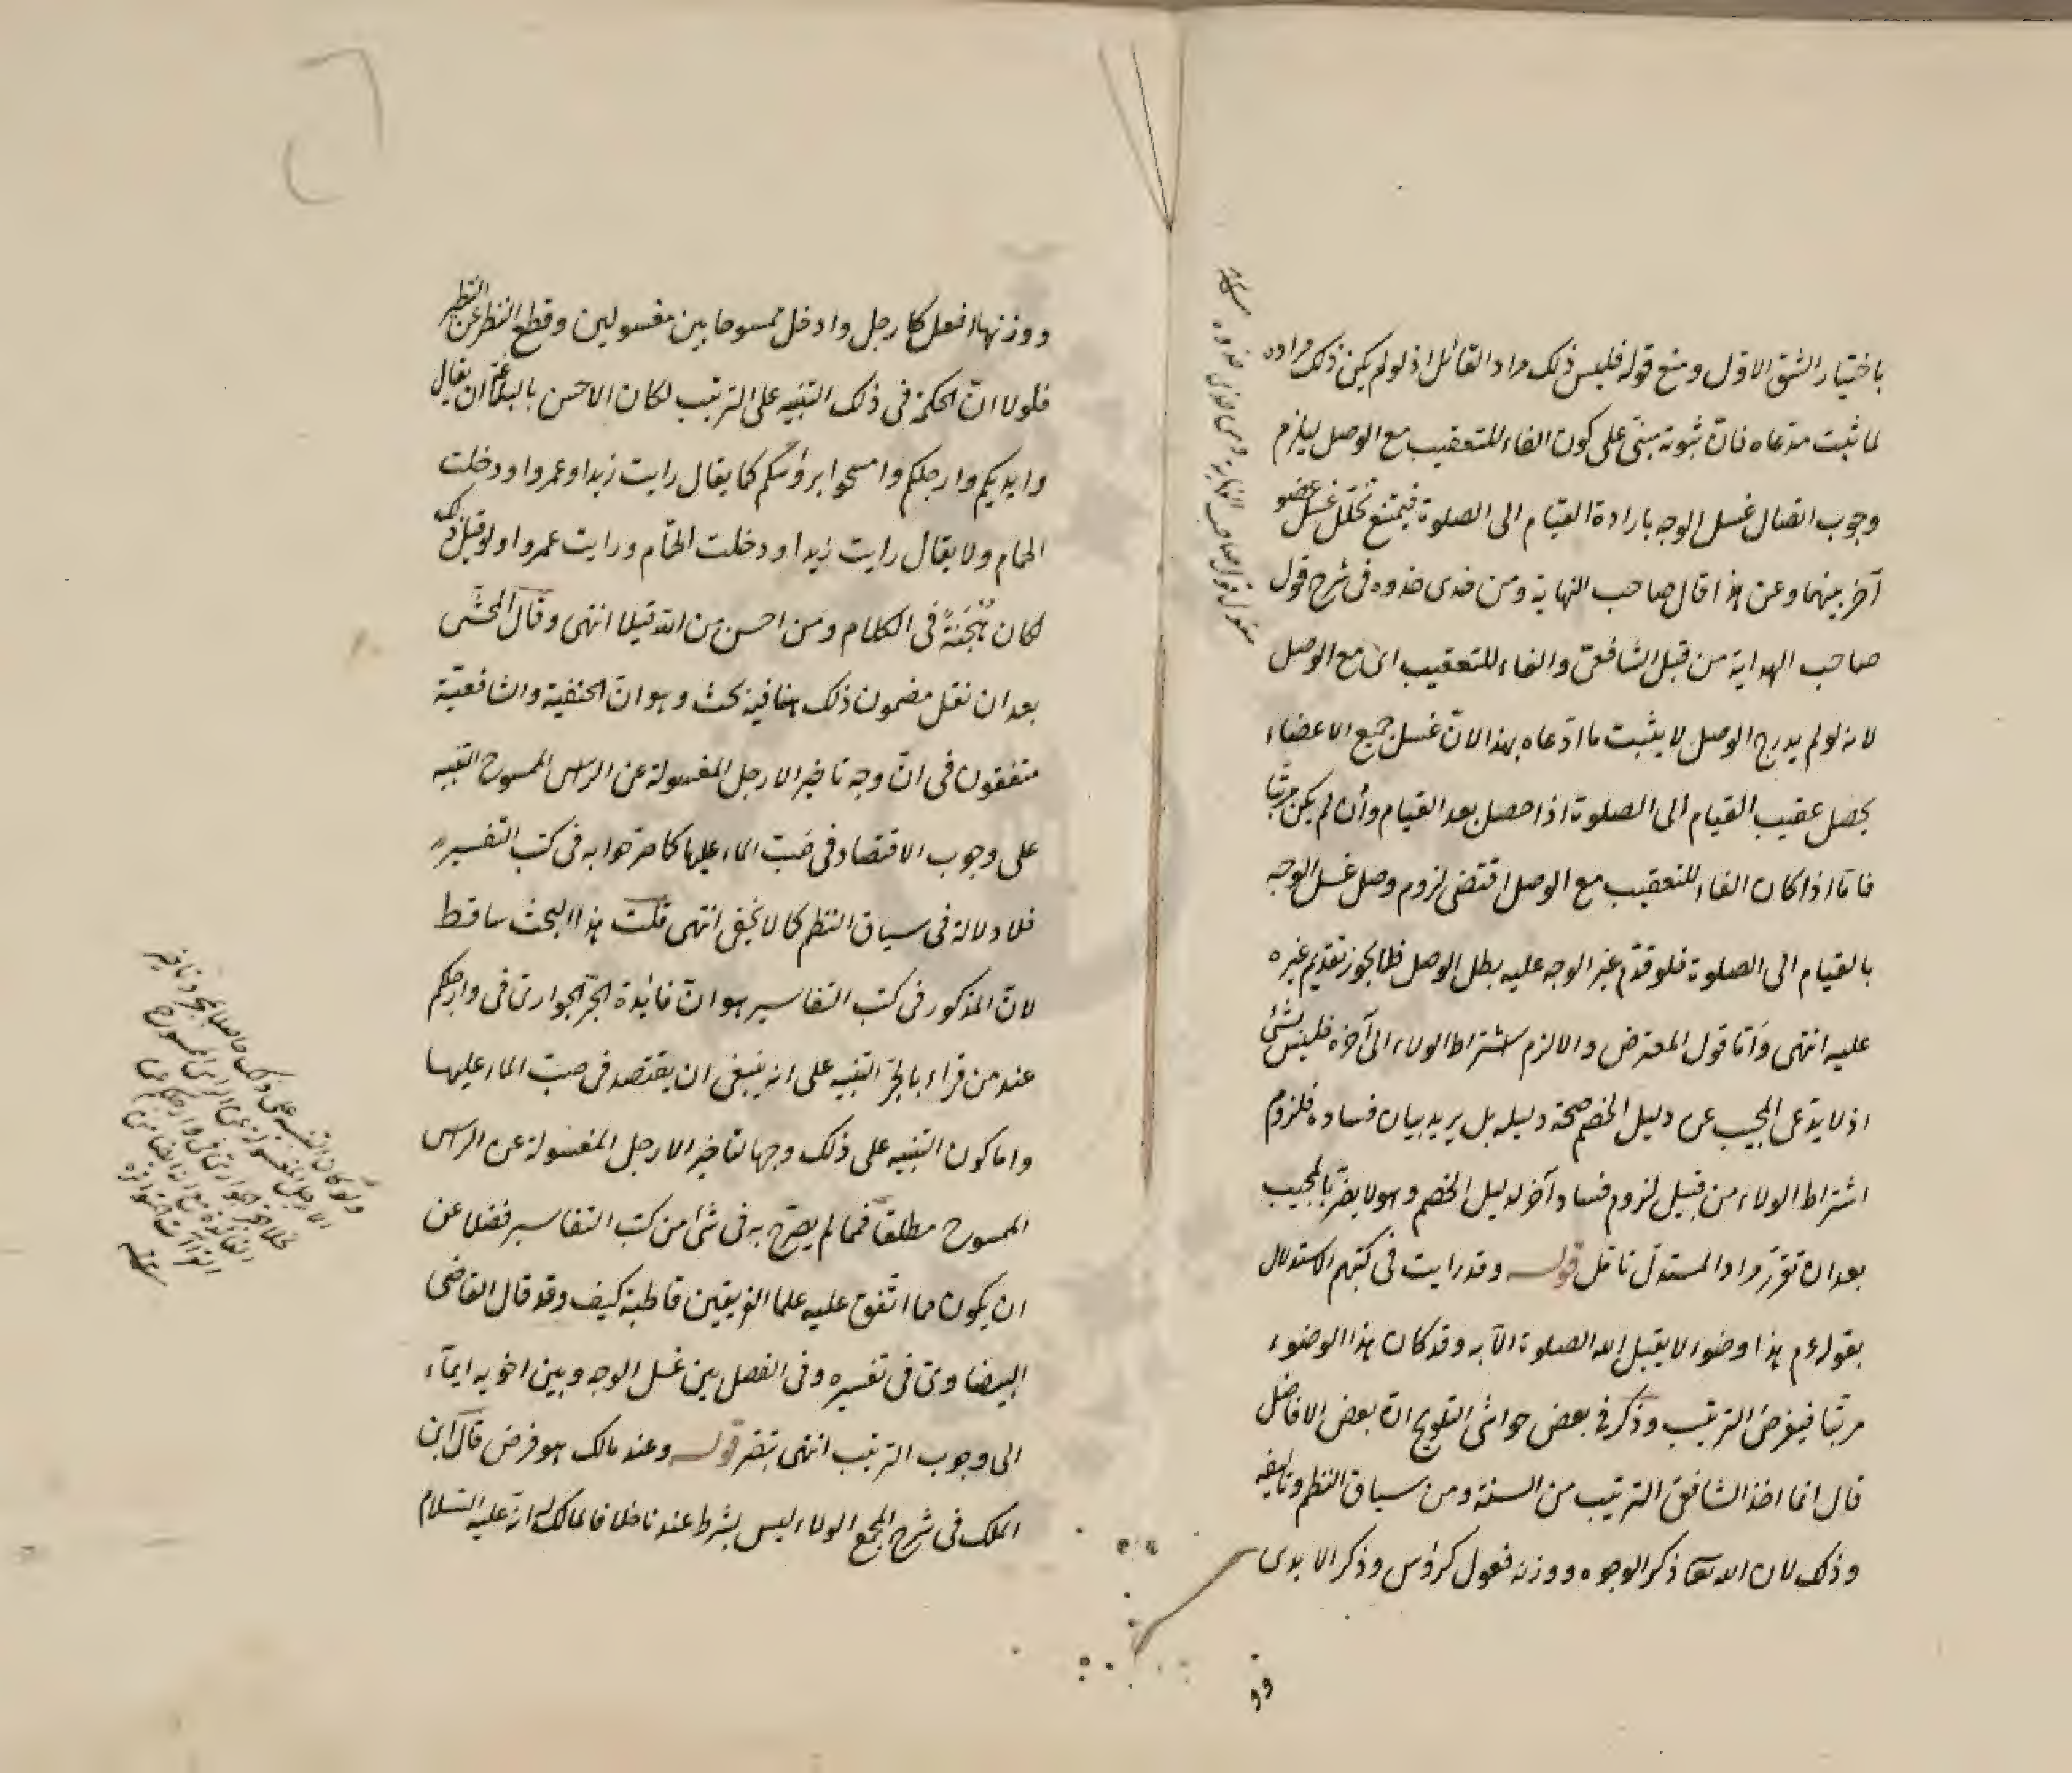 باختيار الشق الاول ومنع قوله فليس ذلك مراد القائل اذ لو لم يكن ذلك مراده
لما ثبت مدعاه فان ثبوته مبنى على كون الفاء للتعقيب مع الوصل ليلزم
وجوب اتصال غسل الوجه بارادة القيام الى الصلوة فيمتنع تخلل غسل عضو
آخر بينهما وعن هذا قال صاحب النهاية ومن حذى حذوه فى شرح قول
صاحب الهداية من قبل الشافعى والفاء للتعقيب اى مع الوصل
لانه لو لم يدرج الوصل لا يثبت ما ادعاه بهذا لان غسل جميع الاعضاء
يحصل عقيب القيام الى الصلوة اذا حصل بعد القيام وان لم يكن مرتبا
فاما اذا كان الفاء للتعقيب مع الوصل اقتضى لزوم وصل غسل الوجه
بالقيام الى الصلوة فلو قدم غير الوجه عليه بطل الوصل فلا يجوز تقديم غيره
عليه انتهى واما قول المعترض والا لزم اشتراط الولاء الى آخره فليس بشئ
اذ لا يدعى المجيب عن دليل الخصم صحة دليله بل يريد بيان فساده فلزوم
اشتراط الولاء من قبيل لزوم فساد آخر لدليل الخصم وهو لا يضر بالمجيب
بعد ان تقرر مراد المستدل تأمل قوله وقد رايت فى كتبهم الاستدلال
بقوله عم هذا وضوء لا يقبل الله الصلوة الا به وقد كان هذا الوضوء
مرتبا فيفرض الترتيب وذكر فى بعض حواشى التلويح ان بعض الافاضل
قال انما اخذ الشافعى الترتيب من السنة ومن سياق النظم وتاليفه
وذلك لان الله تعا ذكر الوجوه ووزنه فعول كرؤس وذكر الايدى
وو
ووزنها افعل كارجل وادخل ممسوحا بين مغسولين وقطع النظر عن النظير
فلولا ان الحكمة فى ذلك التنبيه على الترتيب لكان الاحسن بالبلاغة ان يقال
وايديكم وارجلكم وامسحوا برؤسكم كما يقال رايت زيدا وعمروا ودخلت
الحمام ولا يقال رايت زيدا ودخلت الحمام ورايت عمروا ولو قيل ذلك
لكان هجنة فى الكلام ومن احسن من الله قيلا انتهى وقال المحشى
بعد ان نقل مضمون ذلك ههنا فيه بحث وهو ان الحنفية والشافعية
متفقون فى ان وجه تاخير الارجل المغسولة عن الراس الممسوح التنبيه
على وجوب الاقتصاد فى صب الماء عليها كما صرحوا به فى كتب التفسير
فلا دلالة فى سياق النظم كما لا يخفى انتهى قلت هذا البحث ساقط
لان المذكور فى كتب التفاسير هو ان فائدة الجر الجوارى فى وارجلكم
عند من قراء بالجر التنبيه على انه ينبغى ان يقتصد فى صب الماء عليها
واما كون التنبيه على ذلك وجها لتاخير الارجل المغسولة عن الراس
الممسوح مطلقا فمما لم يصرح به فى شئ من كتب التفاسير فضلا عن
ان يكون مما اتفق عليه علماء الفريقين قاطبة كيف وقد قال القاضى
البيضاوى فى تفسيره وفى الفصل بين غسل الوجه وبين اخويه ايماء
الى وجوب الترتيب انتهى تبصر قوله وعند مالك هو فرض قال ابن
الملك فى شرح المجمع الولاء ليس بشرط عندنا خلافا لمالك له انه عليه السلام
ولو كان التنبيه على ذلك حاصلا بمجرد تاخير
الارجل المغسولة عن الراس الممسوح